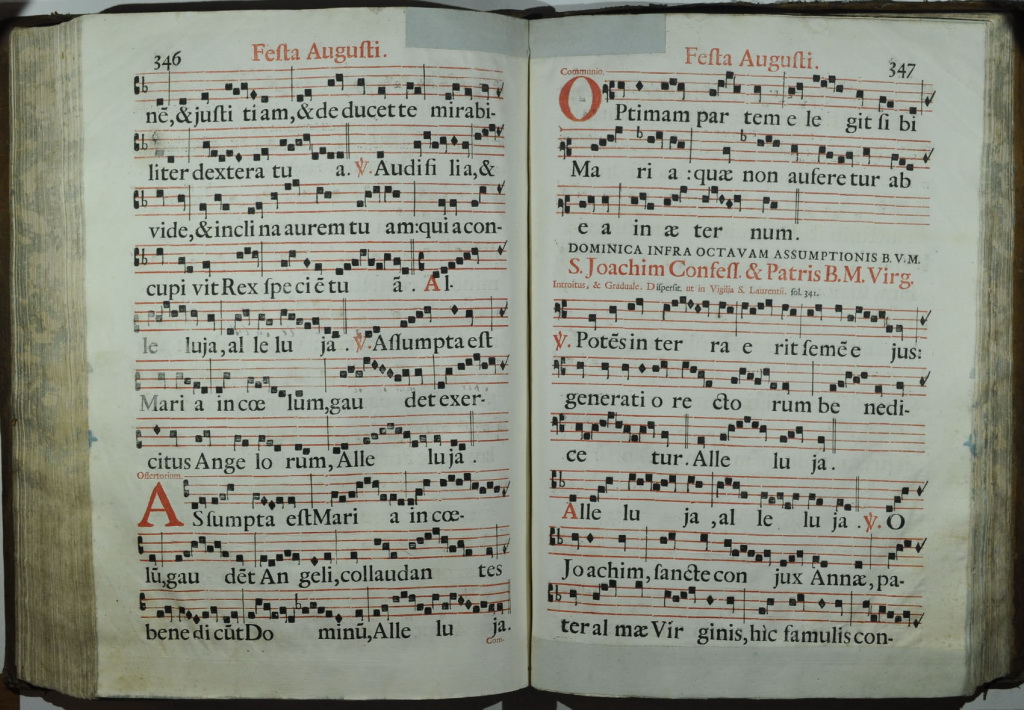 346
Festa Augusti.
nẽ, & justi ti am, & de ducet te mirabi-
liter dextera tu a. ℣. Audi fi lia, &
vide, & incli na aurem tu am: qui a con-
cupi vit Rex spe ci ẽ tu ã. Al-
le luja, al le lu ja. ℣. Assumpta est
Mari a in cœ lum, gau det exer-
citus Ange lo rum, Alle lu ja.
Offertorium.
ASsumpta est Mari a in cœ-
lũ, gau dẽt An geli, collaudan tes
bene di cũt Do minũ, Alle lu ja.
Com-
Festa Augusti.
347
Communio.
OPtimam par tem e le git si bi
Ma ri a: quæ non aufere tur ab
e a in æ ter num.
DOMINICA INFRA OCTAVAM ASSUMPTIONIS B.V.M.
S. Joachim Confess. & Patris B. M. Virg.
Introitus, & Graduale. Dispersit. ut in Vigilia S. Laurentii. fol. 341.
℣. Potẽs in ter ra e rit semẽ e jus:
generati o re cto rum be nedi-
ce tur. Alle lu ja.
Alle lu ja, al le lu ja. ℣. O
Jo achim, sancte con jux Annæ, pa-
ter al mæ Vir ginis, hic famulis con-